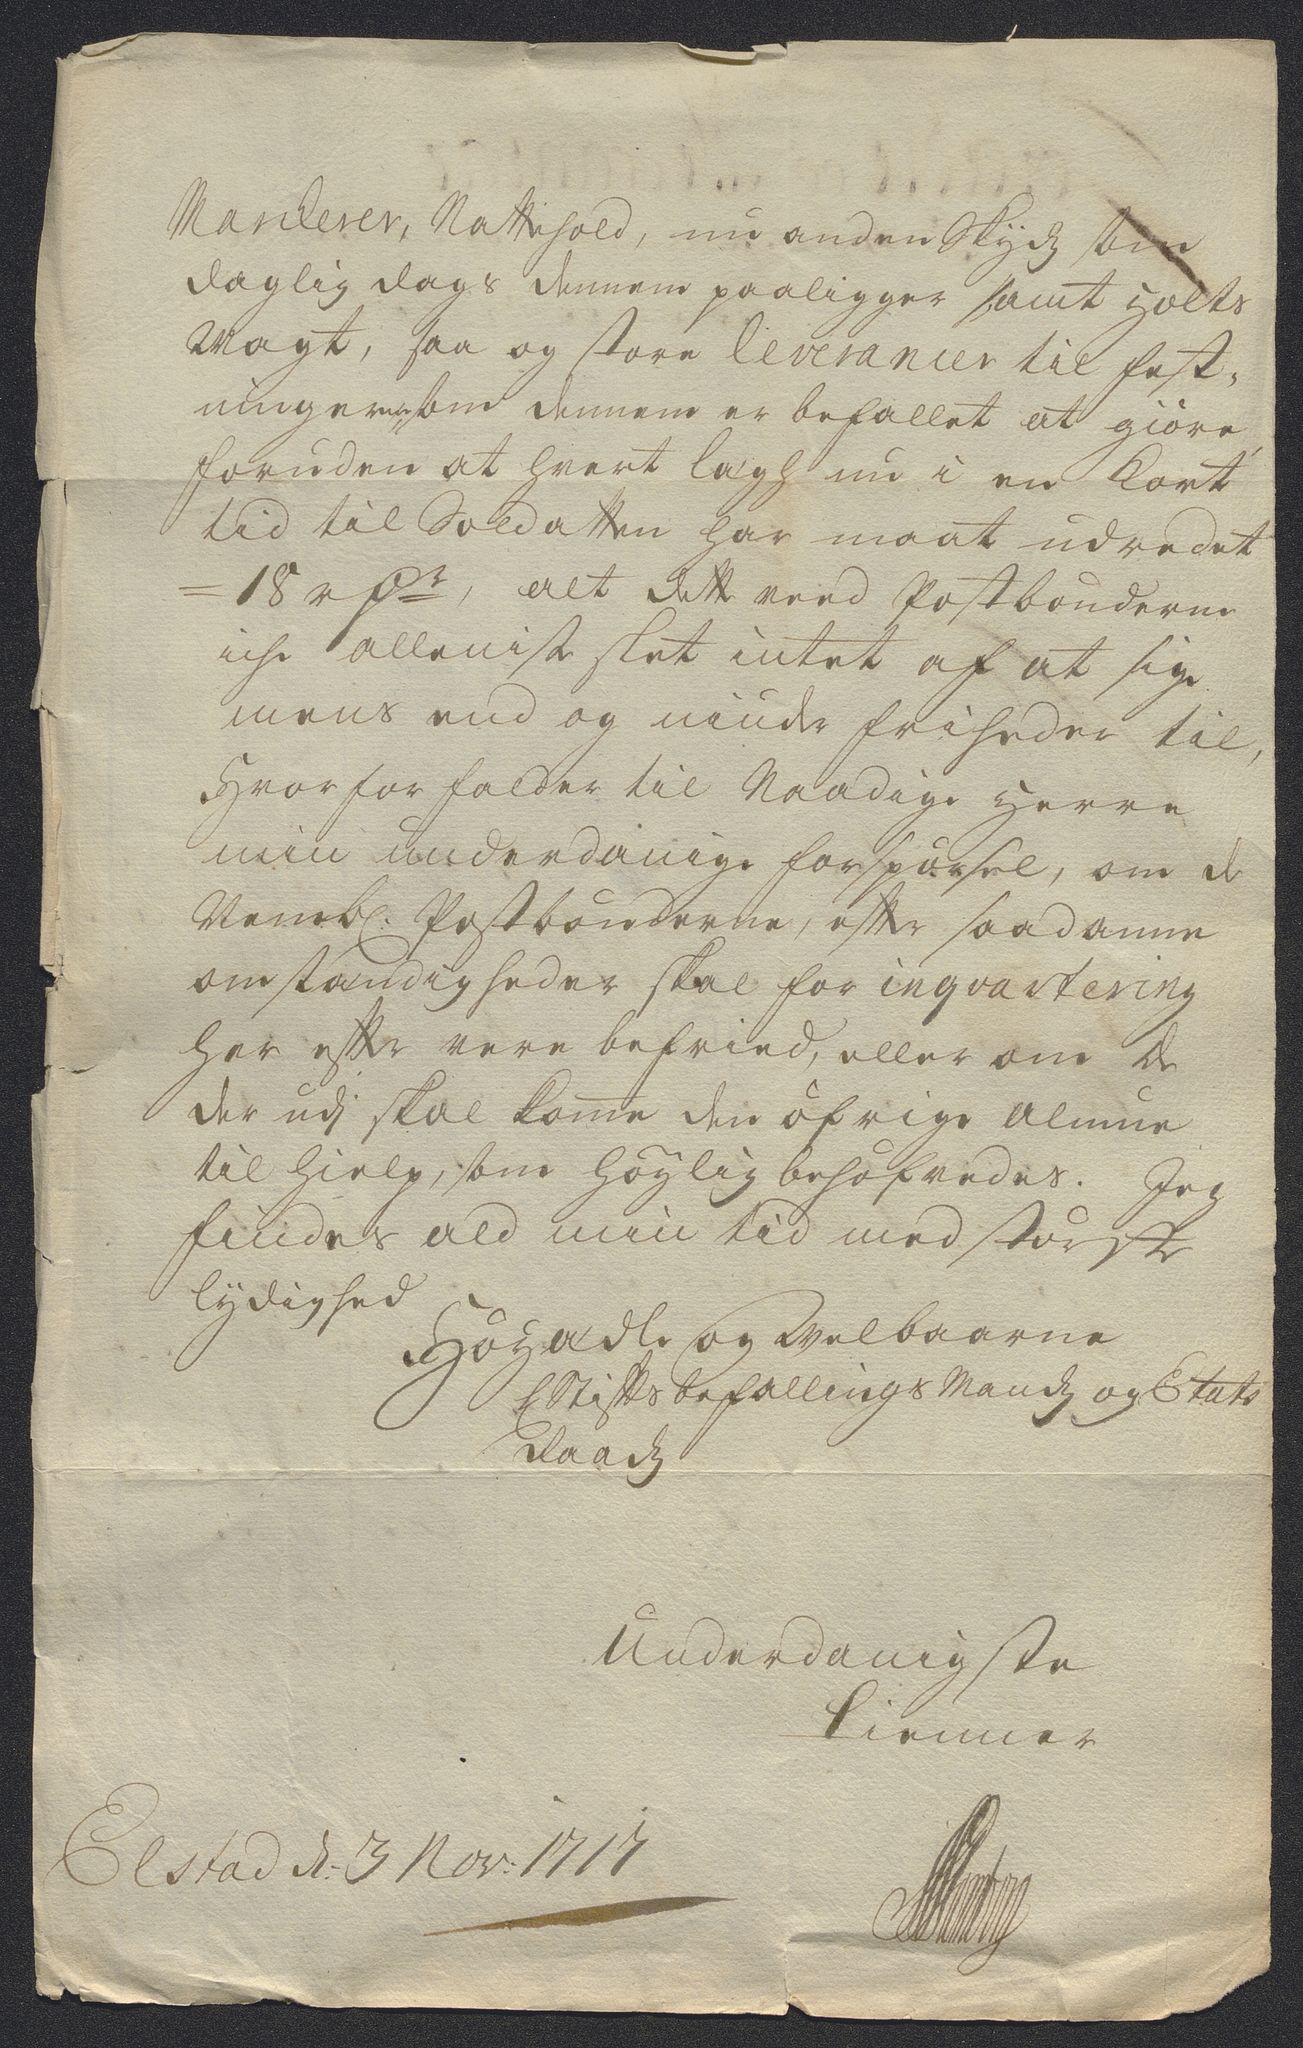 Marcherer, Nattehold, nu anden Skyds som
daglig dags dennem paaligger samt Holts
Wagt, saa og store leverancer til fest¬
ningerne som dennem er befallet at giöre,
foruden at hvert lægh nu i en kort
tid til Soldatten har maat udredet
= 18 r, alt dette veed Postbönderne
iche alleniste slet intet af at sige
mens end og niude friheder til,
Hvorfor falder til Naadige Herre
min underdanige forspørsel, om de
Postbønderne, efter saadanne
omstændigheder skal for inqvartering
her efter vere befried, eller om de
der udj skal kome den öfrige Almue
til hielp, som höÿlig behöfvedes. Jeg
findes ald min tid med störste
lydighed
Höÿædle og Welbaarne
Hr Stiftsbefallings Mands og Etats
Raads
Underdanigste
Tienner
Elstad d: 3 Nov: 1717